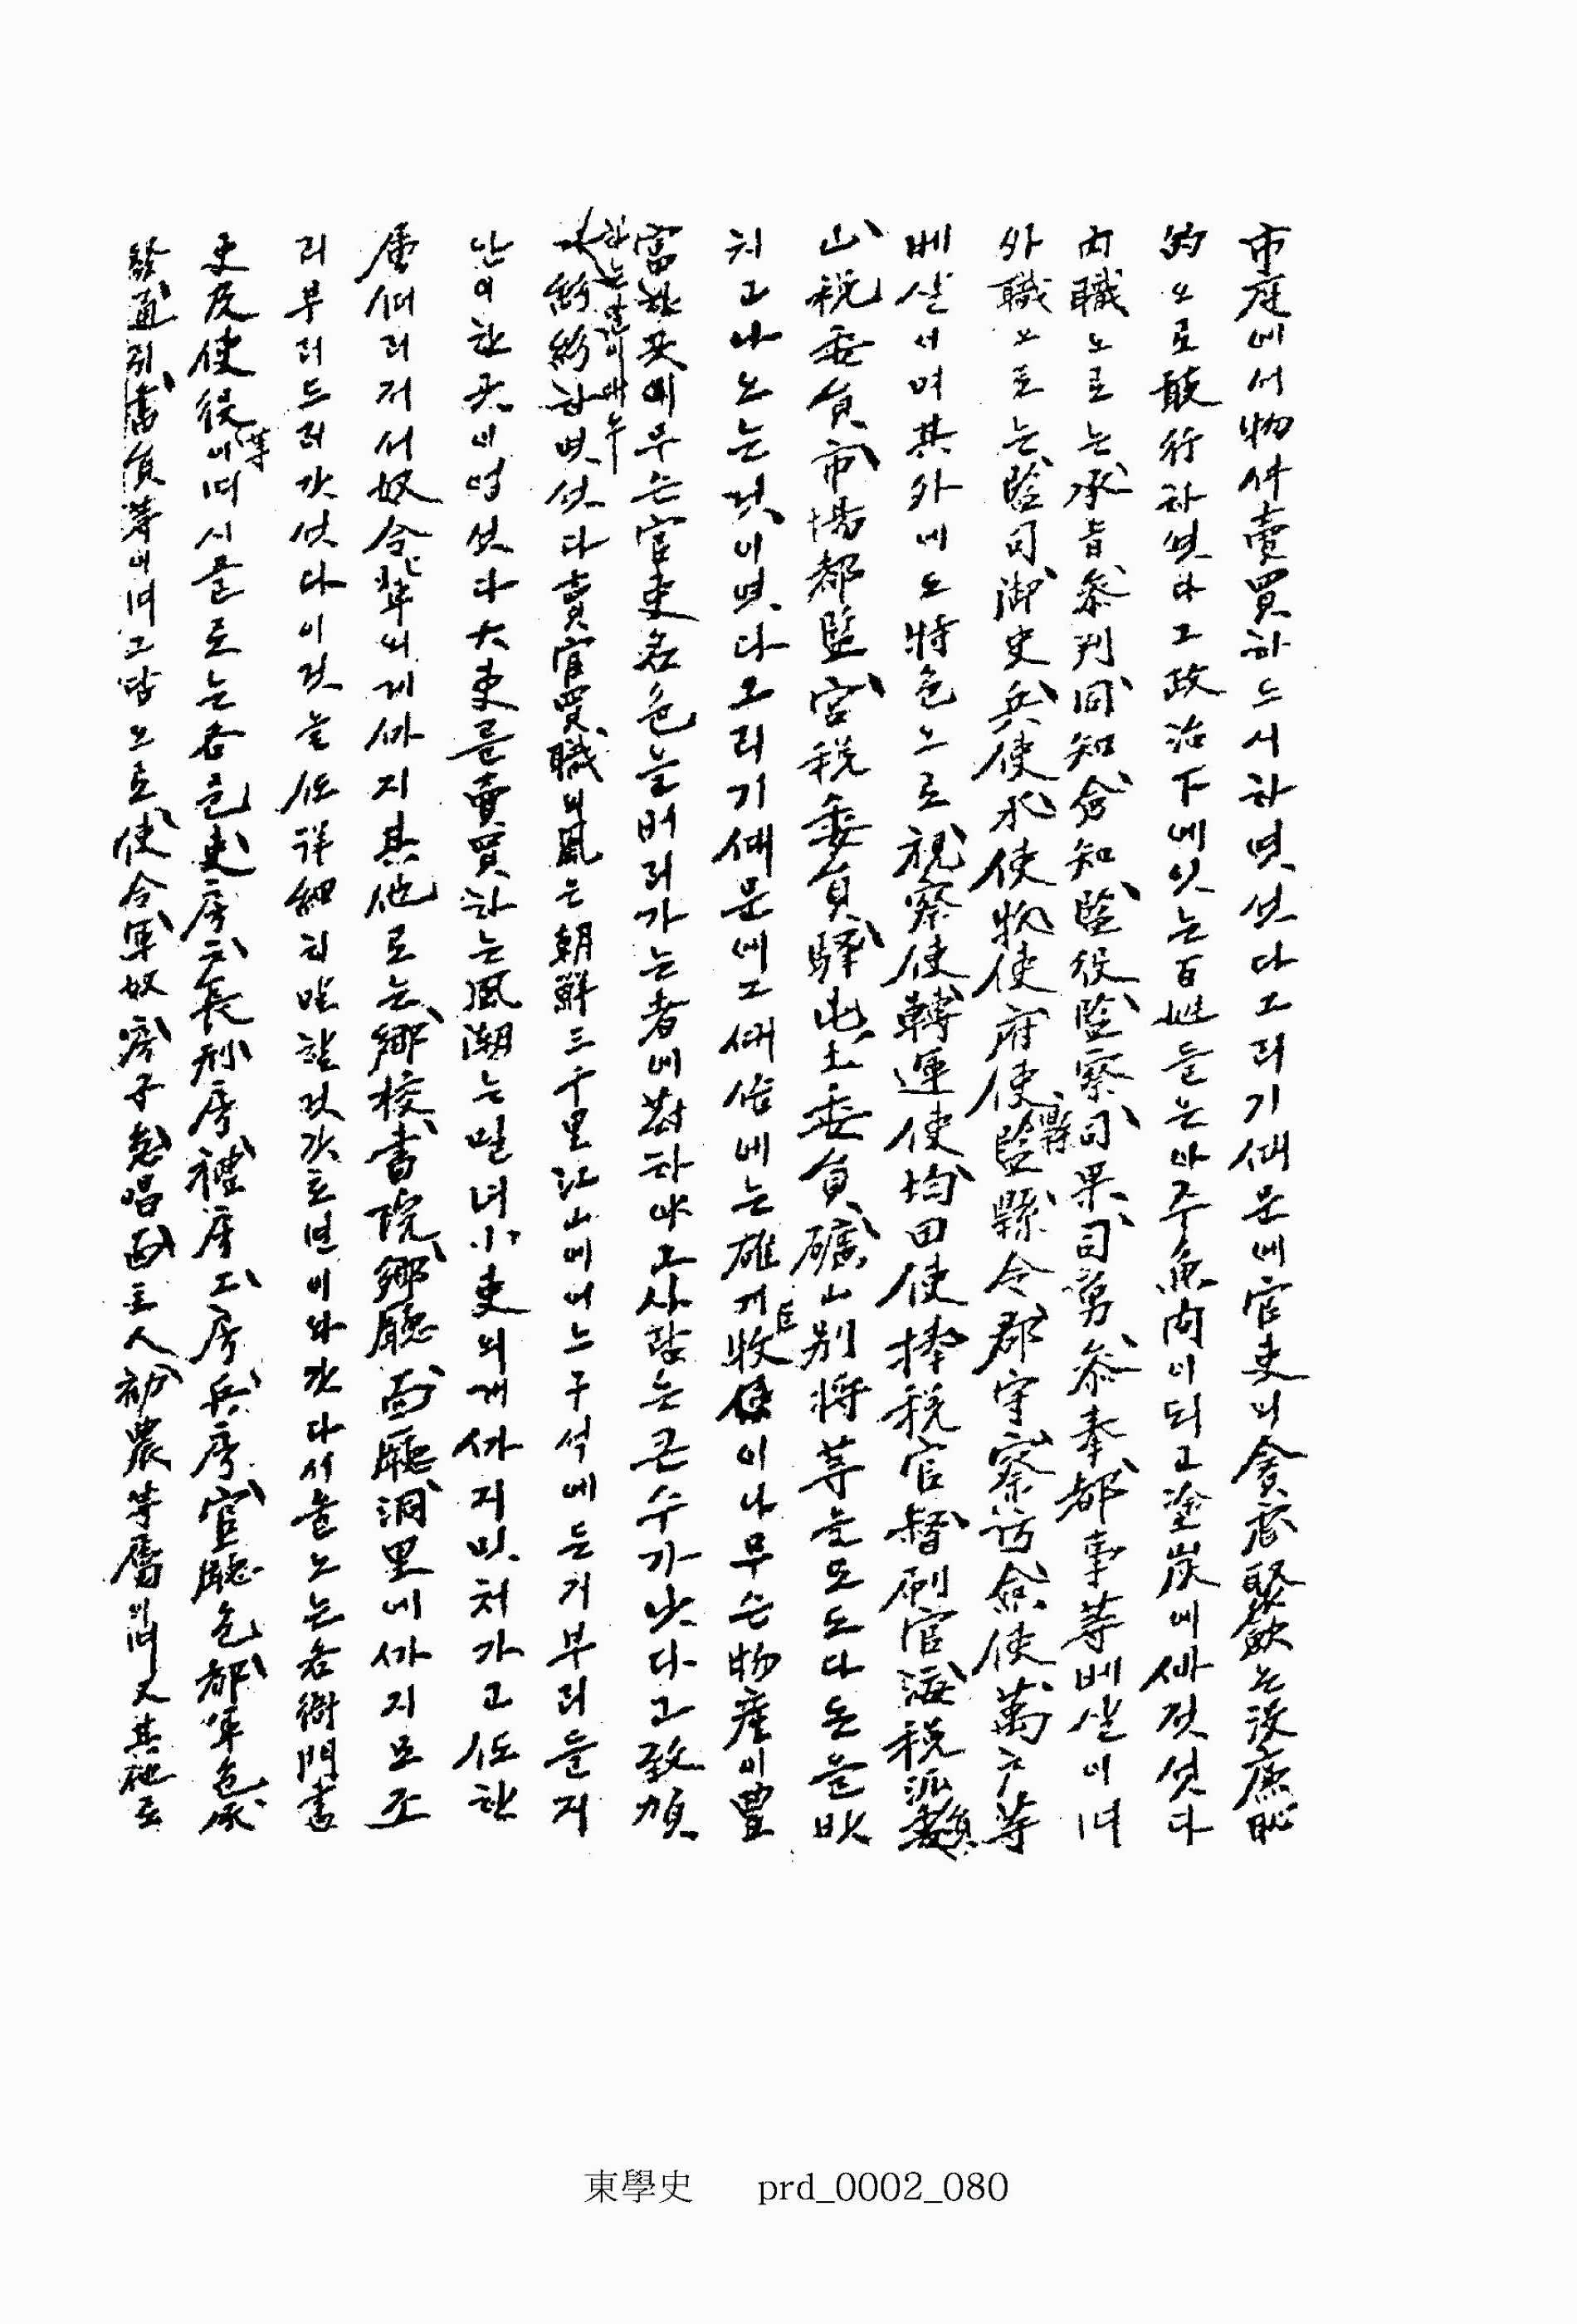 市庭에서物件賣買하드시하엿섯다그리기ᄯᅢ문에官吏의貪虐聚斂는沒廉恥
的으로敢行하엿다그政治下에잇는百姓들은아주魚肉이되고塗炭에ᄲᅡ젓섯다
內職으로는承旨參判同知僉知監役監察司果司勇參奉都事等베살이며
外職으로는監司御史兵使水使牧使府使縣監縣令郡守察訪僉使萬戶等
베살이며其外에도特色으로視察使轉運使均田使捧稅官督刷官海稅派員
山稅委員市場都監宮稅委員驛屯土委員礦山別將等은모도다돈을바
치고나오는것이엿다그리기ᄯᅢ문에그ᄯᅢ時에는雄거巨收이나무슨物産이豊
富한곳에무슨官吏名色을버러가는者에對하야그사람은큰수가낫다고致賀
하는ᄇᆡ
紛紛하엿섯다賣官買職의風은朝鮮三千里江山에어느구석에든지부리를지
안이한곳이업섯다大吏를賣買하는風潮는밀녀小吏의게ᄭᅡ지미처가고ᄯᅩ한
屬ᄯᅥ러저서奴令輩의게ᄭᅡ지其他로는鄕校書院鄕廳面廳洞里에ᄭᅡ지모조
리부러드러갓섯다이것을ᄯᅩ詳細히말할것갓흐면이와갓다서울노는各衙門書
吏及使役等이며시골로는各邑吏房戶長刑房禮房工房兵房官廳色都軍色承
發通引書員等이며그담으로使令軍奴房子急唱面主人勸農等屬이며又其他로